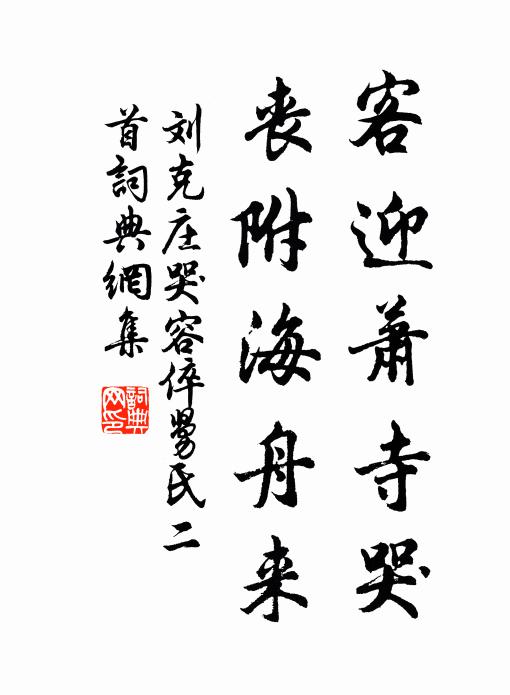 客迎萧寺哭
丧附海舟来
刘克庄哭容倅舅氏二
首词典網集
詞典
网印